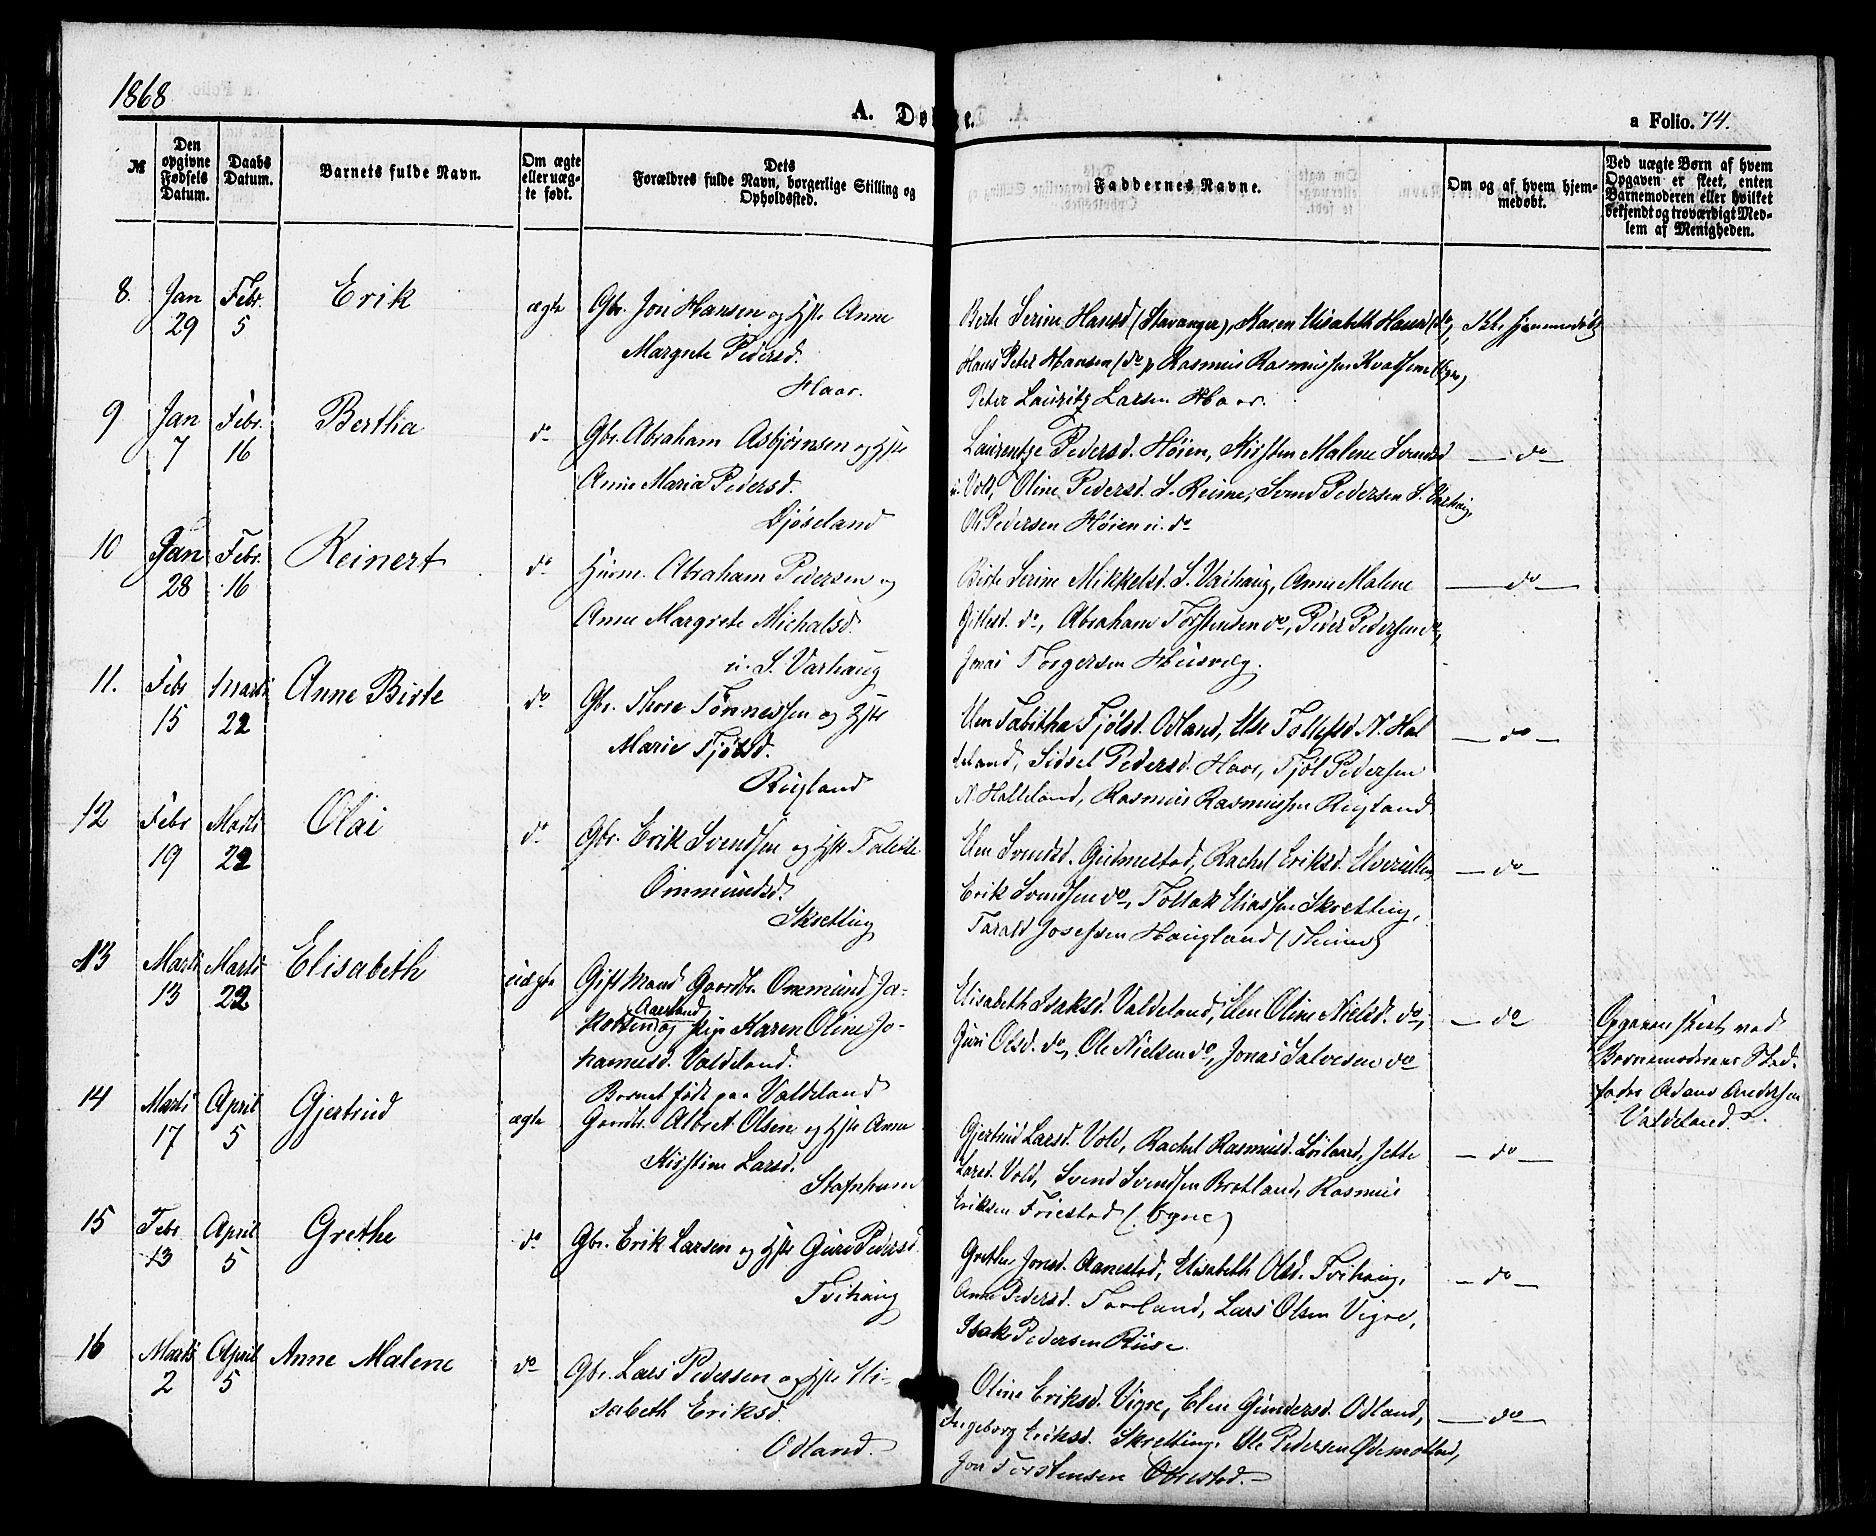 1868
A. Døbte.
a Folio. 74.
№
Den opgivne Fødsels Datum.
Daabs Datum.
Barnets fulde Navn.
Om ægte eller uægte født.
Dets Forældres fulde Navn, borgerlige Stilling og Opholdssted.
Faddernes Navne.
Om og af hvem hjemmedøbt.
Ved uægte Børn af hvem Opgaven er skeet, enten Barnemoderen eller hvilket bekjendt og troværdigt Medlem af Menigheden.
8. Jan 29 Febr. 5 Erik ægte
Gbr. Jon Hansen og Hstr Anne
Margrete Pedersd.
Haar.
Berte Serine Hansd (Stavanger), Karen Elisabeth Hansd (do),
Hans Peter Hansen (do), Rasmus Rasmussen Kvalheim (Ogne)
Peter Lauritz Larsen Haar.
Ikke hjemmedøbt
9 Jan 7 Febr. 16 Bertha do
Gbr. Abraham Asbjørnsen og Hstr
Anne Maria Pedersd.
Djøseland
Laurentze Pedersd. Høien, Kirsten Malene Svendsd
Vold, Oline Pedersd. S. Reime, Svend Pedersen S. Varhaug,
Ole Pedersen Høien u. do
do
10 Jan 28 Febr. 16 Reinert do
Huusm. Abraham Pedersen og
Anne Margrete Michalsd.
u. S. Varhaug
Birte Serine Mikkelsd. S. Varhaug, Anne Malene
Gitlesd. do, Abraham Torstensen do, Peder Pedersen do,
Jonas Torgersen Husveg.
do
11. Febr 15 Marts 22 Anne Birte do
Gbr. Thore Tønnessen og Hstr
Marie Fjølsd.
Rugland
Elen Tabitha Fjølsd. Odland, Else Tollefsd. N. Hal
deland, Sidsel Pedersd. Haar, Fjøl Pedersen
N. Haldeland, Rasmus Rasmussen Rugland.
do
12 Febr 19 Marts 22 Olai do
Gbr. Erik Svendsen og Hstr
Ommundsd.
Skretting
Elen Svendsd. Gudmestad, Rachel Eriksd.
Erik Svendsen do, Tollak Eliassen Skretting,
Tarald Josefsen Haugland (Thime)
do
13 Marts 13 Marts 22 Elisabeth uægte
Gift Mand Gaardbr. Ommund Ja-
kobsen Aarsland og Pige Karen Oline Jo-
hannesd. Valdeland.
Barnet født paa Valdeland
Elisabeth Isaksd. Valdeland, Elen Oline Nielsd. do,
Guri Olsd. do, Ole Nielsen do, Jonas Salvesen do
do
Opgaven skeet ved
Barnemoderens Sted-
fader Adam Andersen
Valdeland.
14 Marts 17 April 5 Gjertrud ægte
Gaardbr. Albret Olsen og Hstr Anne
Kirstine Larsd.
Stafnheim
Gjertrud Larsd. Vold, Rachel Rasmusd. Løiland, Jette
Larsd. Vold, Svend Svendsen Bratland, Rasmus
Eriksen Friestad (Ogne)
do
15 Febr 13 April 5 Grethe do
Gbr. Erik Larsen og Hstr Guri Pedersd.
Tvihaug
Grethe Jonsd. Aanestad, Elisabeth Olsd. Tvihaug,
Anne Pedersd. Torland, Lars Olsen Vigre,
Isak Pedersen
do
16 Marts 2 April 5 Anne Malene do
Gbr. Lars Pedersen og Hstr Eli-
sabeth Eriksd.
Odland.
Oline Eriksd. Vigre, Elen Gundersd. Odland,
Ingeborg Eriksd. Skretting, Ole Pedersen Ødemotland,
Jon Torstensen Obrestad.
do